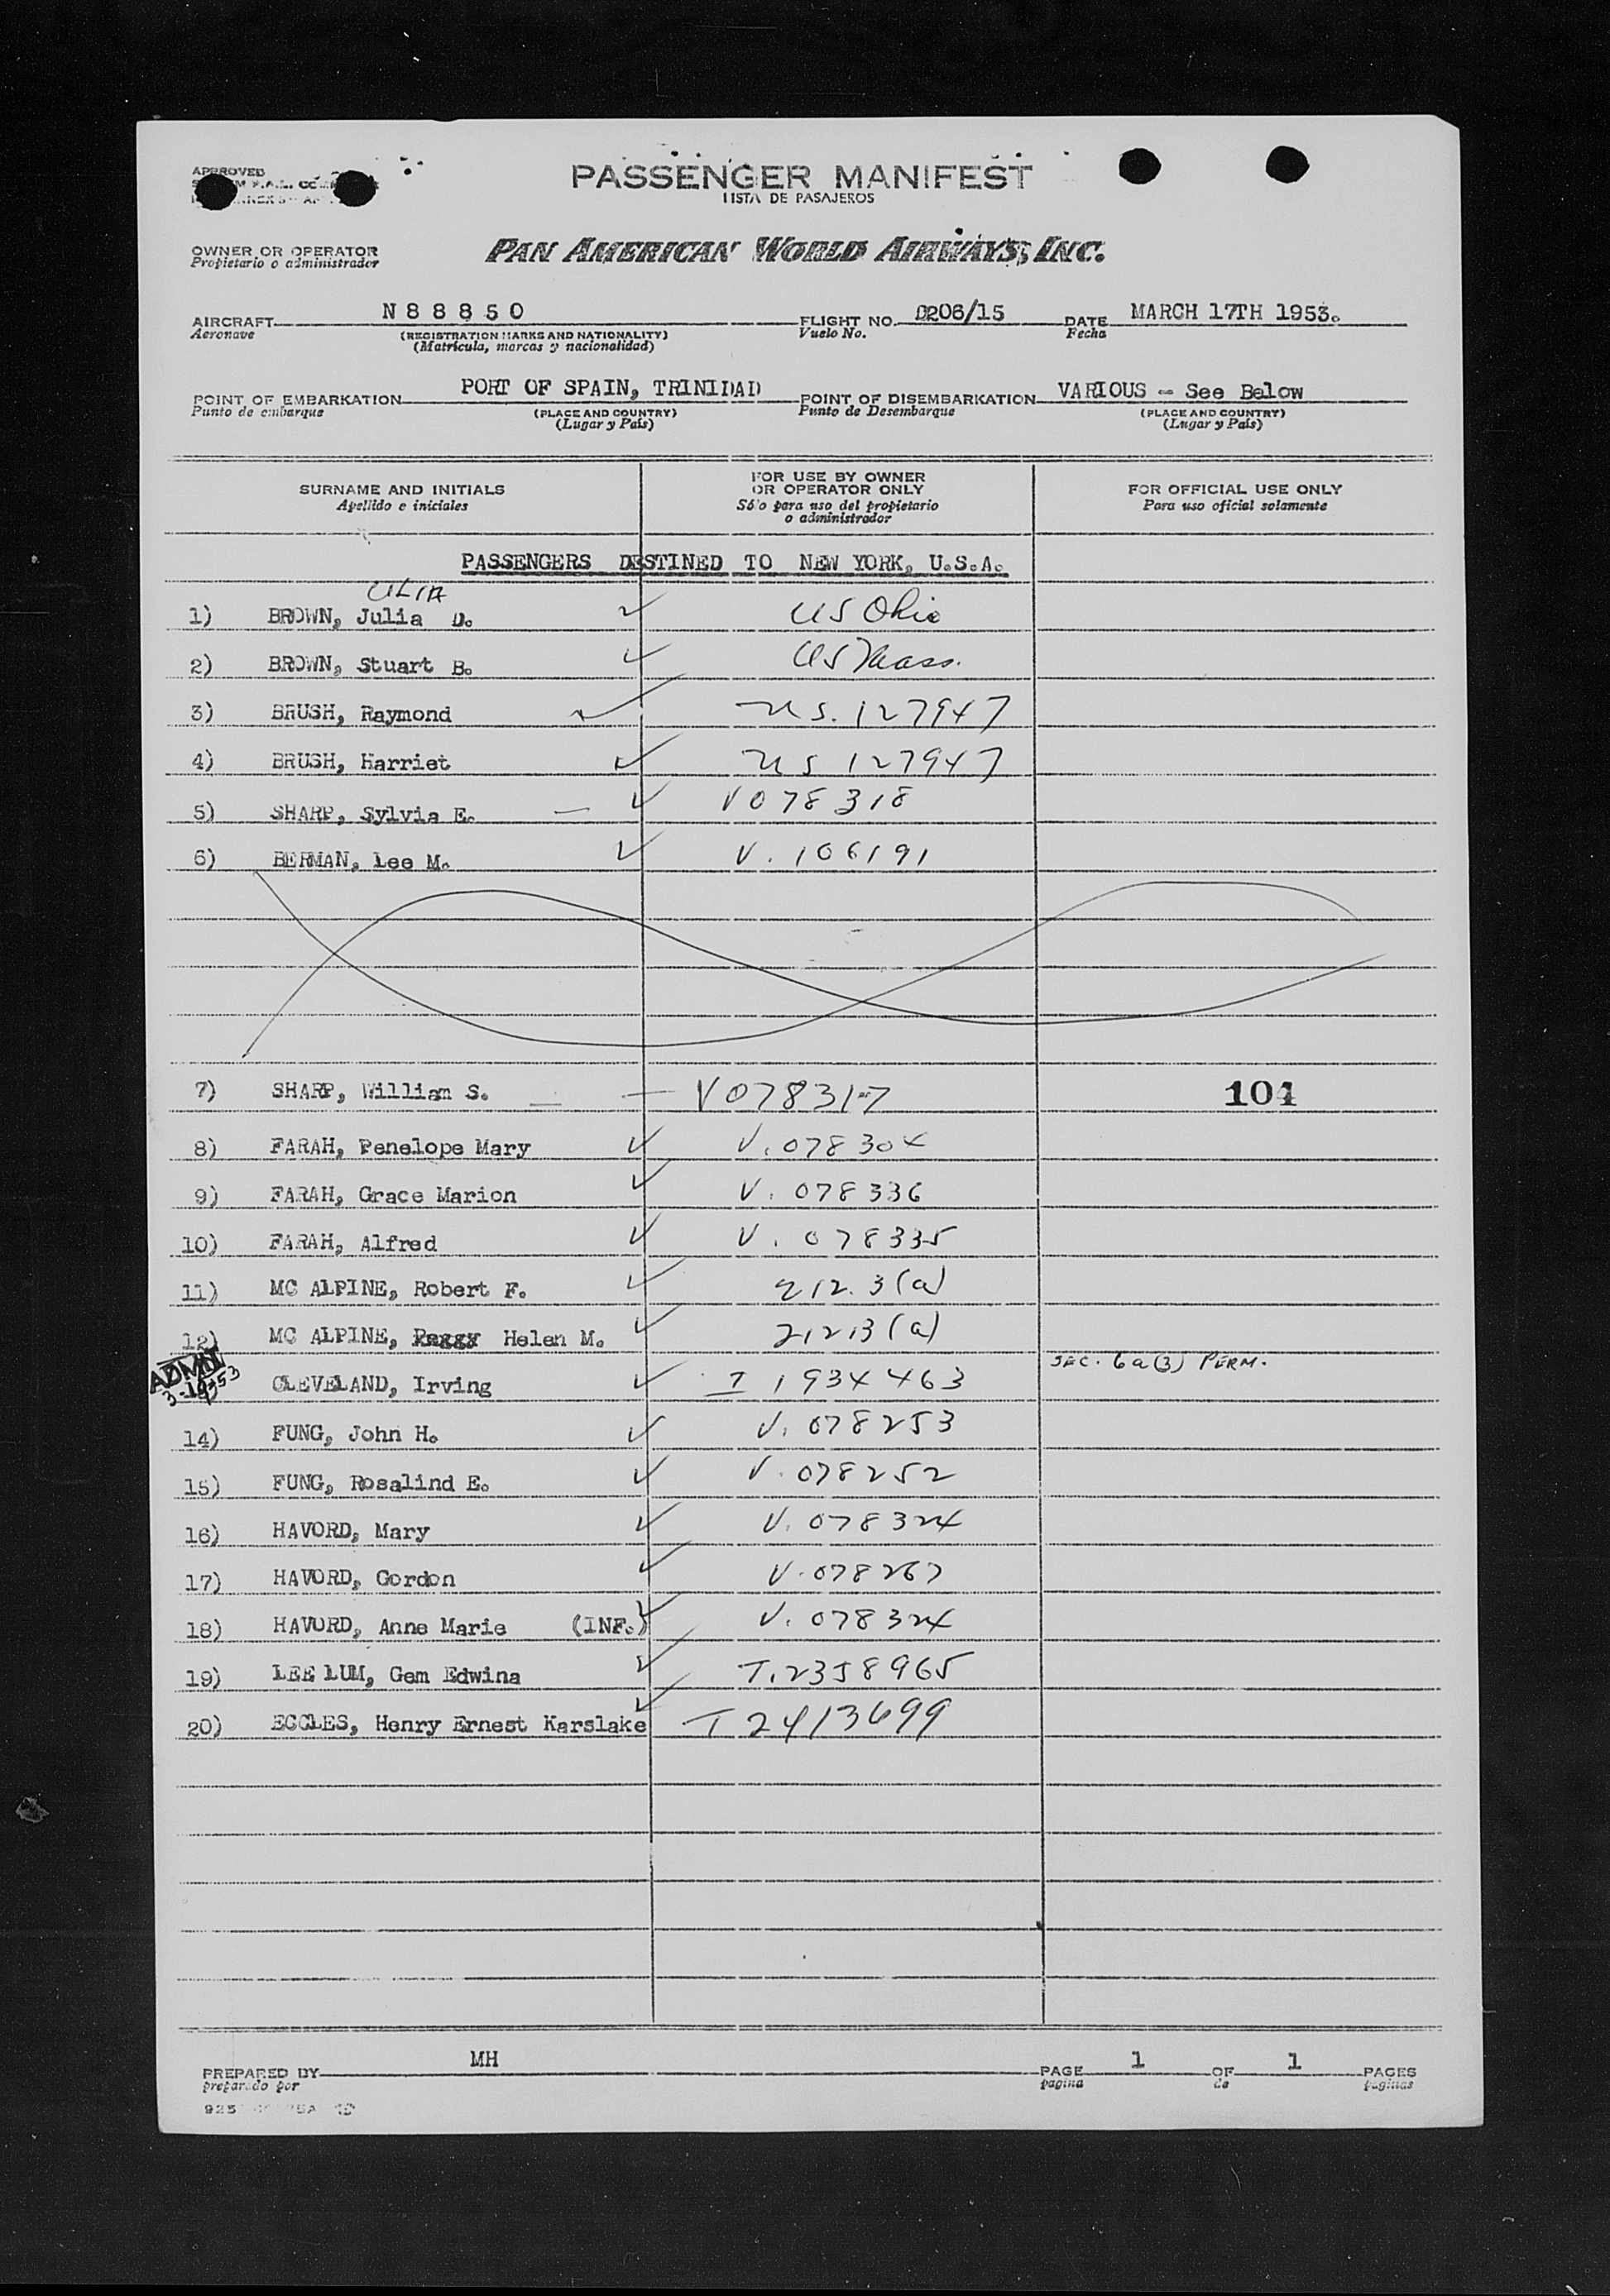 APPROVED
PASSENGER MANIFEST
LISTA DE PASAJEROS
OWNER OR OPERATOR
Propietario o administrador
PAN AMERICAN WORLD AIRWAYS, INC.
AIRCRAFT N 8 8 8 5 0 FLIGHT NO. 0206/15 DATE MARCH 17TH 1953.
Aeronave (REGISTRATION MARKS AND NATIONALITY) Vuelo No. Fecha
(Matrícula, marcas y nacionalidad)
POINT OF EMBARKATION PORT OF SPAIN, TRINIDAD POINT OF DISEMBARKATION VARIOUS - See Below
Punto de embarque (PLACE AND COUNTRY) Punto de Desembarque (PLACE AND COUNTRY)
(Lugar y País) (Lugar y País)
SURNAME AND INITIALS FOR USE BY OWNER OR OPERATOR ONLY FOR OFFICIAL USE ONLY
Apellido e iniciales Sólo para uso del propietario o administrador Para uso oficial solamente
PASSENGERS DESTINED TO NEW YORK, U.S.A.
ULIA
1) BROWN, Julia D. ✓ US Ohio
2) BROWN, Stuart B. ✓ US Mass.
3) BRUSH, Raymond ✓ US. 127947
4) BRUSH, Harriet ✓ US 127947
5) SHARP, Sylvia E. — ✓ V078318
6) BERMAN, Lee M. ✓ V. 106191
7) SHARP, William S. — — V078317 104
8) FARAH, Penelope Mary ✓ V. 078304
9) FARAH, Grace Marion ✓ V. 078336
10) FARAH, Alfred ✓ V. 078335
11) MC ALPINE, Robert F. ✓ 212.3(a)
12) MC ALPINE, Peggy Helen M. ✓ 212 13(a)
ADMIT
3-19-53 CLEVELAND, Irving ✓ I 1934463 SEC. 6a(3) PERM.
14) FUNG, John H. ✓ V. 078253
15) FUNG, Rosalind E. ✓ V. 078252
16) HAVORD, Mary ✓ V. 078324
17) HAVORD, Gordon ✓ V. 078267
18) HAVORD, Anne Marie (INF.) ✓ V. 078324
19) LEE LUM, Gem Edwina ✓ T. 2358965
20) ECCLES, Henry Ernest Karslake ✓ T 2413699
PREPARED BY MH PAGE 1 OF 1 PAGES
preparado por pagina de paginas